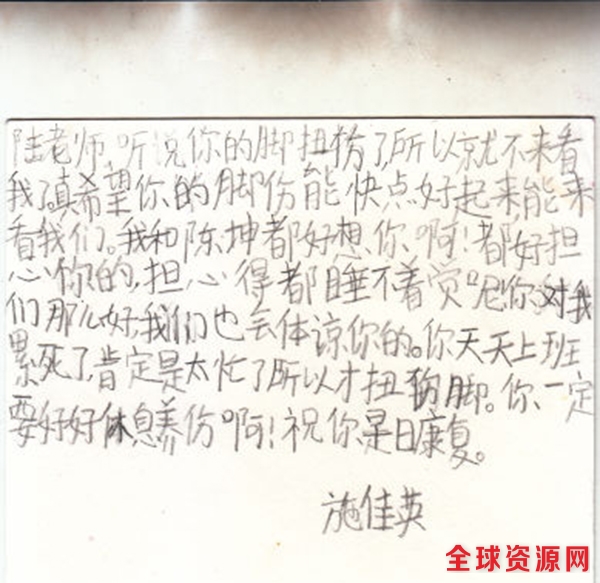 陆老师,听说你的脚扭伤了,所以就不来看
我了,真希望你的脚伤能快点好起来,能来
看我们。我和陈坤都好想你啊!都好担
心你的,担心得都睡不着觉呢!你对我
们那么好,我们也会体谅你的。你天天上班
累死了,肯定是太忙了所以才扭伤脚。你一定
要好好休息养伤啊!祝你是日康复。
施佳英
全球资源网